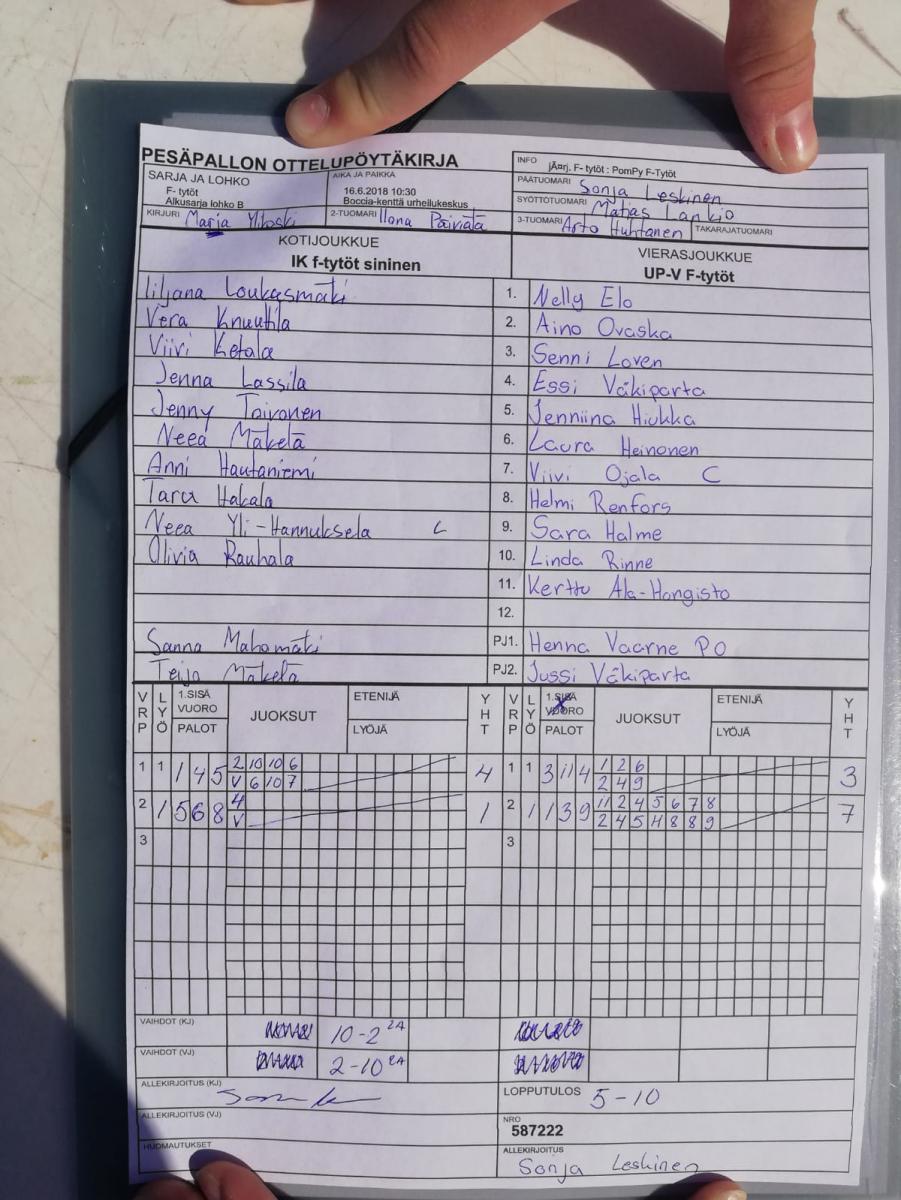 PESÄPALLON OTTELUPÖYTÄKIRJA
INFO jÃ¤rj. F- tytöt : PomPy F-Tytöt
SARJA JA LOHKO
F- tytöt
Alkusarja lohko B
AIKA JA PAIKKA
16.6.2018 10:30
Boccia-kenttä urheilukeskus
PÄÄTUOMARI Sonja Leskinen
SYÖTTÖTUOMARI Matias Lankio
KIRJURI Marja
2-TUOMARI Ilona Päivätä
3-TUOMARI Arto Huhtanen TAKARAJATUOMARI
KOTIJOUKKUE
IK f-tytöt sininen
VIERASJOUKKUE
UP-V F-tytöt
Liljana Loukasmäki 1. Nelly Elo
Vera Knuutila 2. Aino Ovaska
Viivi Ketala 3. Senni Loven
Jenna Lassila 4. Essi Väkiparta
Jenny Toivonen 5. Jenniina Hiukka
Neea Mäkelä 6. Laura Heinonen
Anni Hautaniemi 7. Viivi Ojala C
Taru Hakala 8. Helmi Renfors
Neea Yli-Hannuksela C 9. Sara Halme
Olivia Rauhala 10. Linda Rinne
11. Kerttu Ala-Hongisto
12.
Sanna Mahomäki PJ1. Henna Vaarne PO
Teija Mäkelä PJ2. Jussi Väkiparta
VRP LYÖ 1.SISÄ VUORO PALOT JUOKSUT ETENIJÄ LYÖJÄ YHT VRP LYÖ 1.SISÄ VUORO PALOT JUOKSUT ETENIJÄ LYÖJÄ YHT
1 1 1 4 5 2 10 10 6 4 1 1 3 11 4 1 2 6 3
V 6 10 7 2 4 9
2 1 5 6 8 4 1 2 1 1 3 9 11 2 4 5 6 7 8 7
V 2 4 5 H 8 8 9
3 3
VAIHDOT (KJ) 10-2 2A
VAIHDOT (VJ) 2-10 2A
ALLEKIRJOITUS (KJ)
LOPPUTULOS 5-10
ALLEKIRJOITUS (VJ)
NRO
587222
HUOMAUTUKSET
ALLEKIRJOITUS
Sonja Leskinen